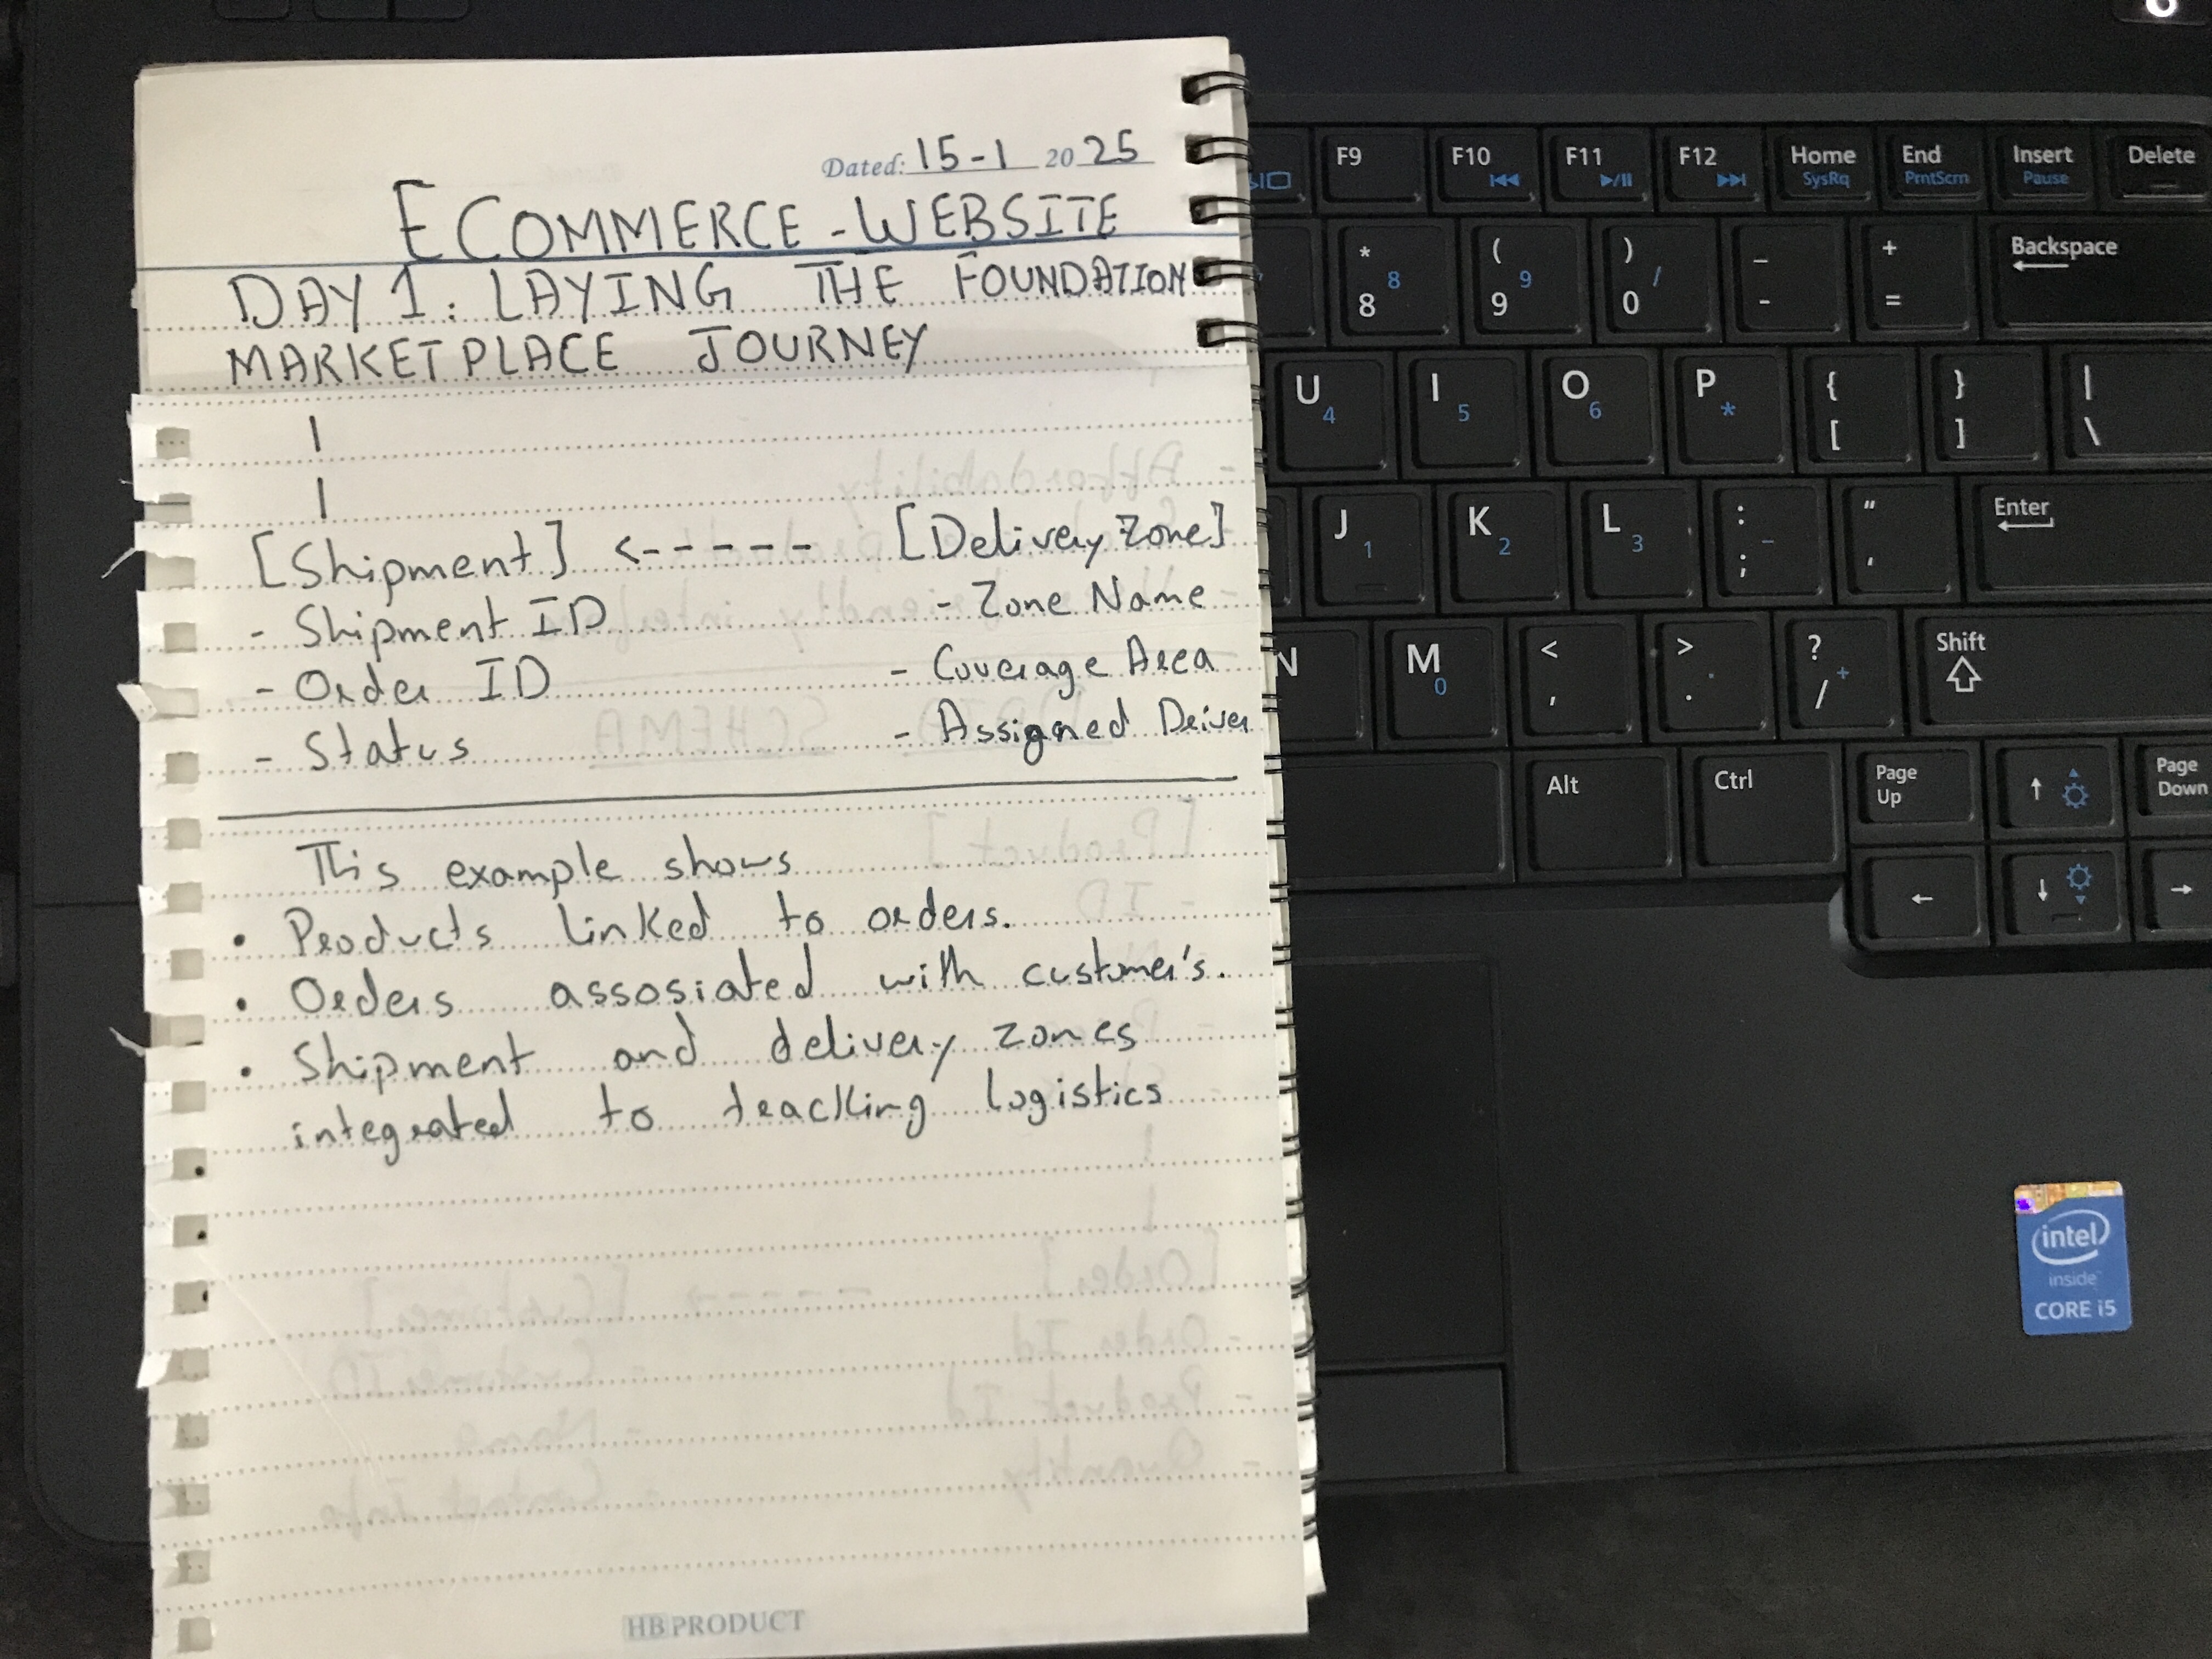 Dated: 15-1 2025
ECOMMERCE-WEBSITE
DAY 1: LAYING THE FOUNDATION
MARKETPLACE JOURNEY
[Shipment] <----- [Delivery Zone]
- Shipment ID - Zone Name
- Order ID - Coverage Area
- Status - Assigned Driver
This example shows
• Products linked to orders.
• Orders assosiated with customer's.
• Shipment and delivery zones
integrated to tracking logistics
HB PRODUCT
F9 F10 F11 F12 Home End Insert Delete
SysRq PrntScrn Pause
* 8 8 ( 9 9 ) / 0 _ - + = Backspace
U 4 I 5 O 6 P * { [ } ] | \
J 1 K 2 L 3 : ; - " ' Enter
N M 0 < , > . ? / + Shift
Alt Ctrl Page Up Page Down
intel
inside
CORE i5